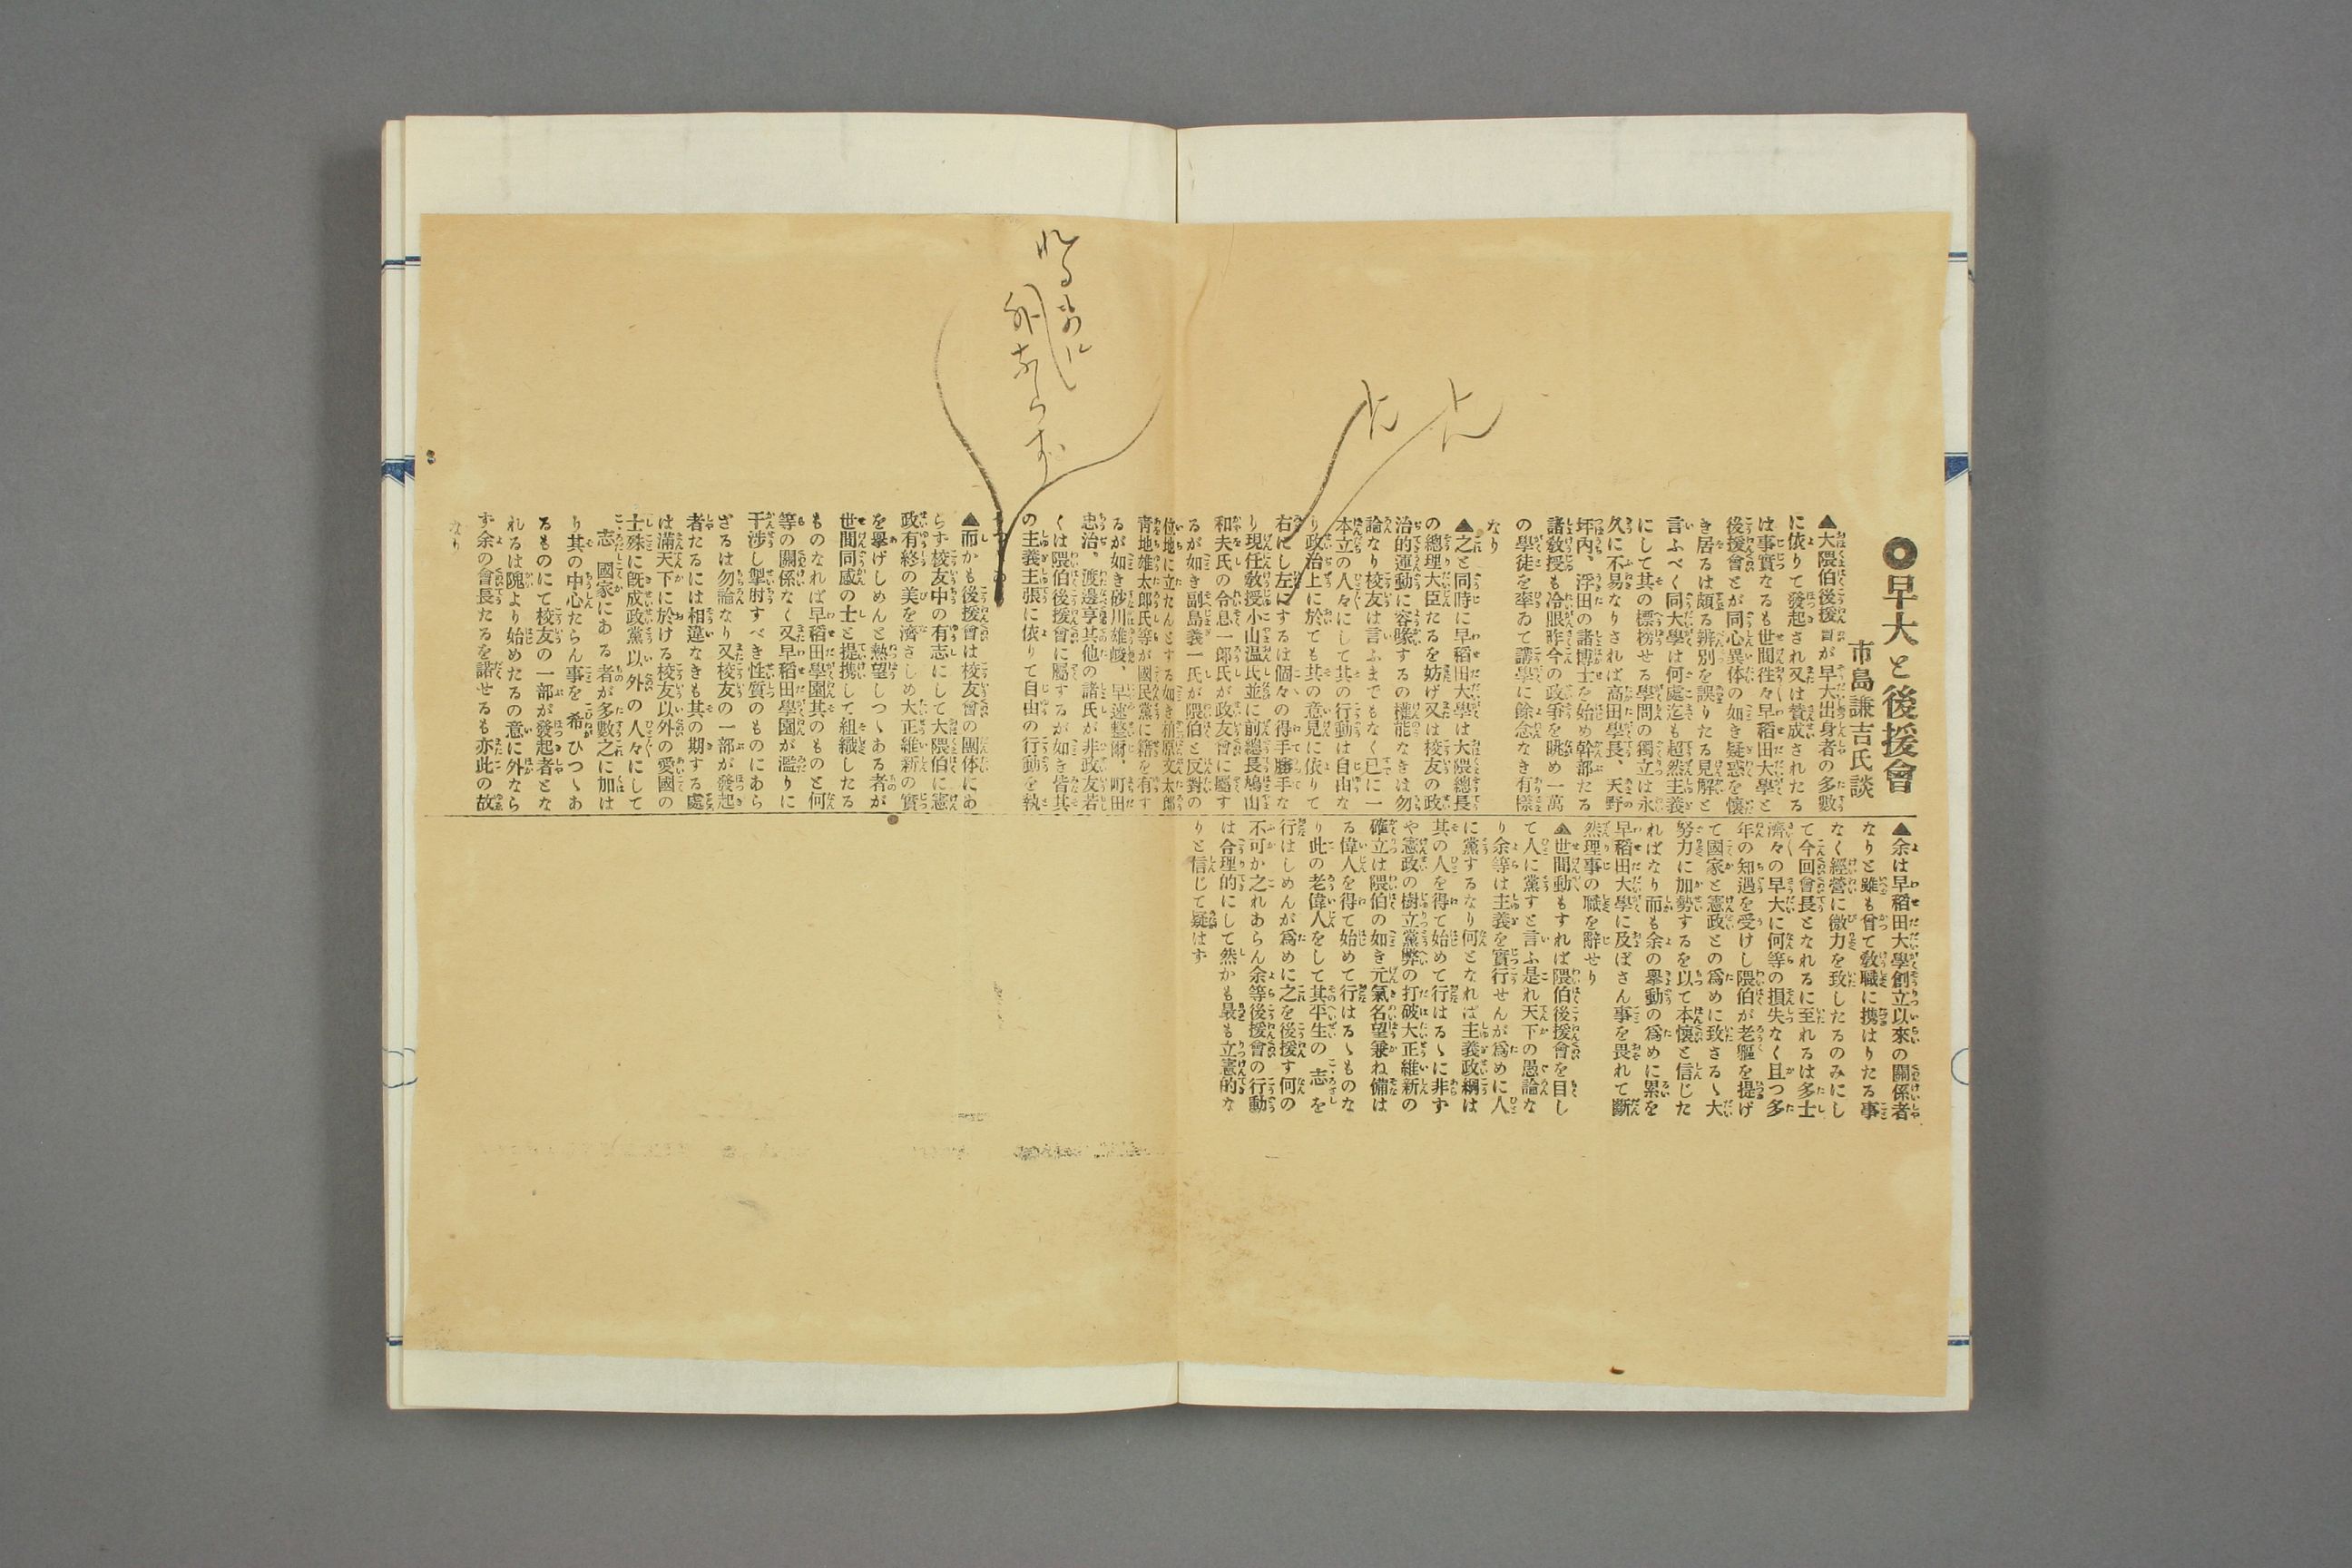 ◎早大と後援會
市島謙吉氏談
▲大隈伯後援會が早大出身者の多數
に依りて發起され又は賛成されたる
は事實なるも世間往々早稻田大學と
後援會とが同心異体の如き疑惑を懷
き居るは頗る辨別を誤りたる見解と
言ふべく同大學は何處迄も超然主義
にして其の標榜せる學問の獨立は永
久に不易なりされば高田學長、天野
坪内、浮田の諸博士を始め幹部たる
諸敎授も冷眼昨今の政爭を眺め一萬
の學徒を率ゐて講學に餘念なき有樣
なり
▲之と同時に早稻田大學は大隈總長
の總理大臣たるを妨げ又は校友の政
治的運動に容喙するの權能なきは勿
論なり校友は言ふまでもなく已に一
本立の人々にして其の行動は自由な
り政治上に於ても其の意見に依りて
右にし左にするは個々の得手勝手な
り現任敎授小山温氏並に前總長鳩山
和夫氏の令息一郎氏が政友會に屬す
るが如き副島義一氏が隈伯と反對の
位地に立たんとする如き相原文太郎
靑地雄太郎氏等が國民黨に籍を有す
るが如き砂川雄峻、早速整爾、町田
忠治、渡邊亨其他の諸氏が非政友若
くは隈伯後援會に屬するが如き皆其
の主義主張に依りて自由の行動を執
れるものに
外ならず
▲而かも後援會は校友會の團体にあ
らず校友中の有志にして大隈伯に憲
政有終の美を濟さしめ大正維新の實
を擧げしめんと熱望しつゝある者が
世間同感の士と提携して組織したる
ものなれば早稻田學園其のものと何
等の關係なく又早稻田學園が濫りに
干渉し掣肘すべき性質のものにあら
ざるは勿論なり又校友の一部が發起
者たるには相違なきも其の期する處
は滿天下に於ける校友以外の愛國の
士殊に既成政黨以外の人々にして
志國家にある者が多數之に加は
り其の中心たらん事を希ひつゝあ
るものにて校友の一部が發起者とな
れるは隗より始めたるの意に外なら
ず余の會長たるを諾せるも亦此の故
なり
▲余は早稻田大學創立以來の關係者
なりと雖も曾て敎職に携はりたる事
なく經營に微力を致したるのみにし
て今回會長となれるに至れるは多士
濟々の早大に何等の損失なく且つ多
年の知遇を受けし隈伯が老軀を提げ
て國家と憲政との爲めに致さるゝ大
努力に加勢するを以て本懷と信じた
ればなり而も余の擧動の爲めに累を
早稻田大學に及ぼさん事を畏れて斷
然理事の職を辭せり
▲世間動もすれば隈伯後援會を目し
て人に黨すと言ふ是れ天下の愚論な
り余等は主義を實行せんが爲めに人
に黨するなり何となれば主義政綱は
其の人を得て始めて行はるゝに非ず
や憲政の樹立黨弊の打破大正維新の
確立は隈伯の如き元氣名望兼ね備は
る偉人を得て始めて行はるゝものな
り此の老偉人をして其平生の志を
行はしめんが爲めに之を後援す何の
不可か之れあらん余等後援會の行動
は合理的にして然かも最も立憲的な
りと信じて疑はず